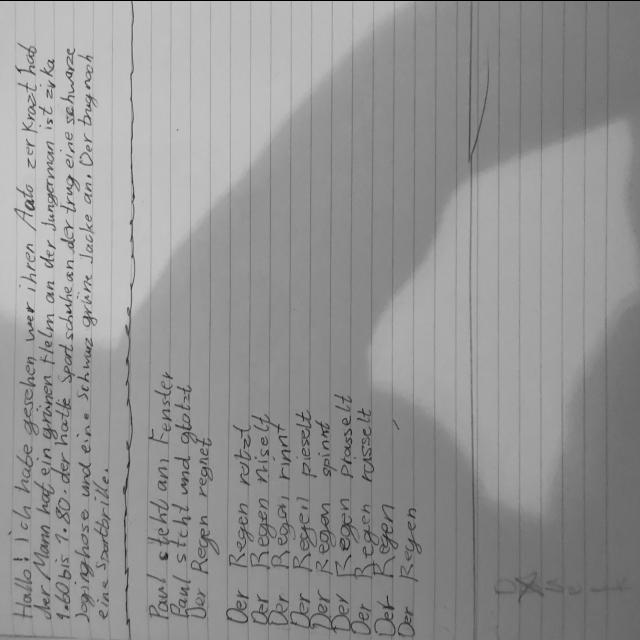 Hallo! ich habe gesehen wer ihren Auto zerkrazt hat
der Mann hat ein grünen Helm an der Jungerman ist zirka
1.60 bis 1.80. der hatte Sportschuhe an. der trug eine schwarze
Joginghose und eine Schwarz grüne Jacke an. Der trug noch
eine Sportbrille.
Paul steht am Fenster
Paul steht und glotzt
Der Regen regnet
Der Regen rotzt
Der Regen nieselt
Der Regen rinnt
Der Regen pieselt
Der Regen spinnt
Der Regen prasselt
Der Regen rasselt
Der Regen
Der Regen